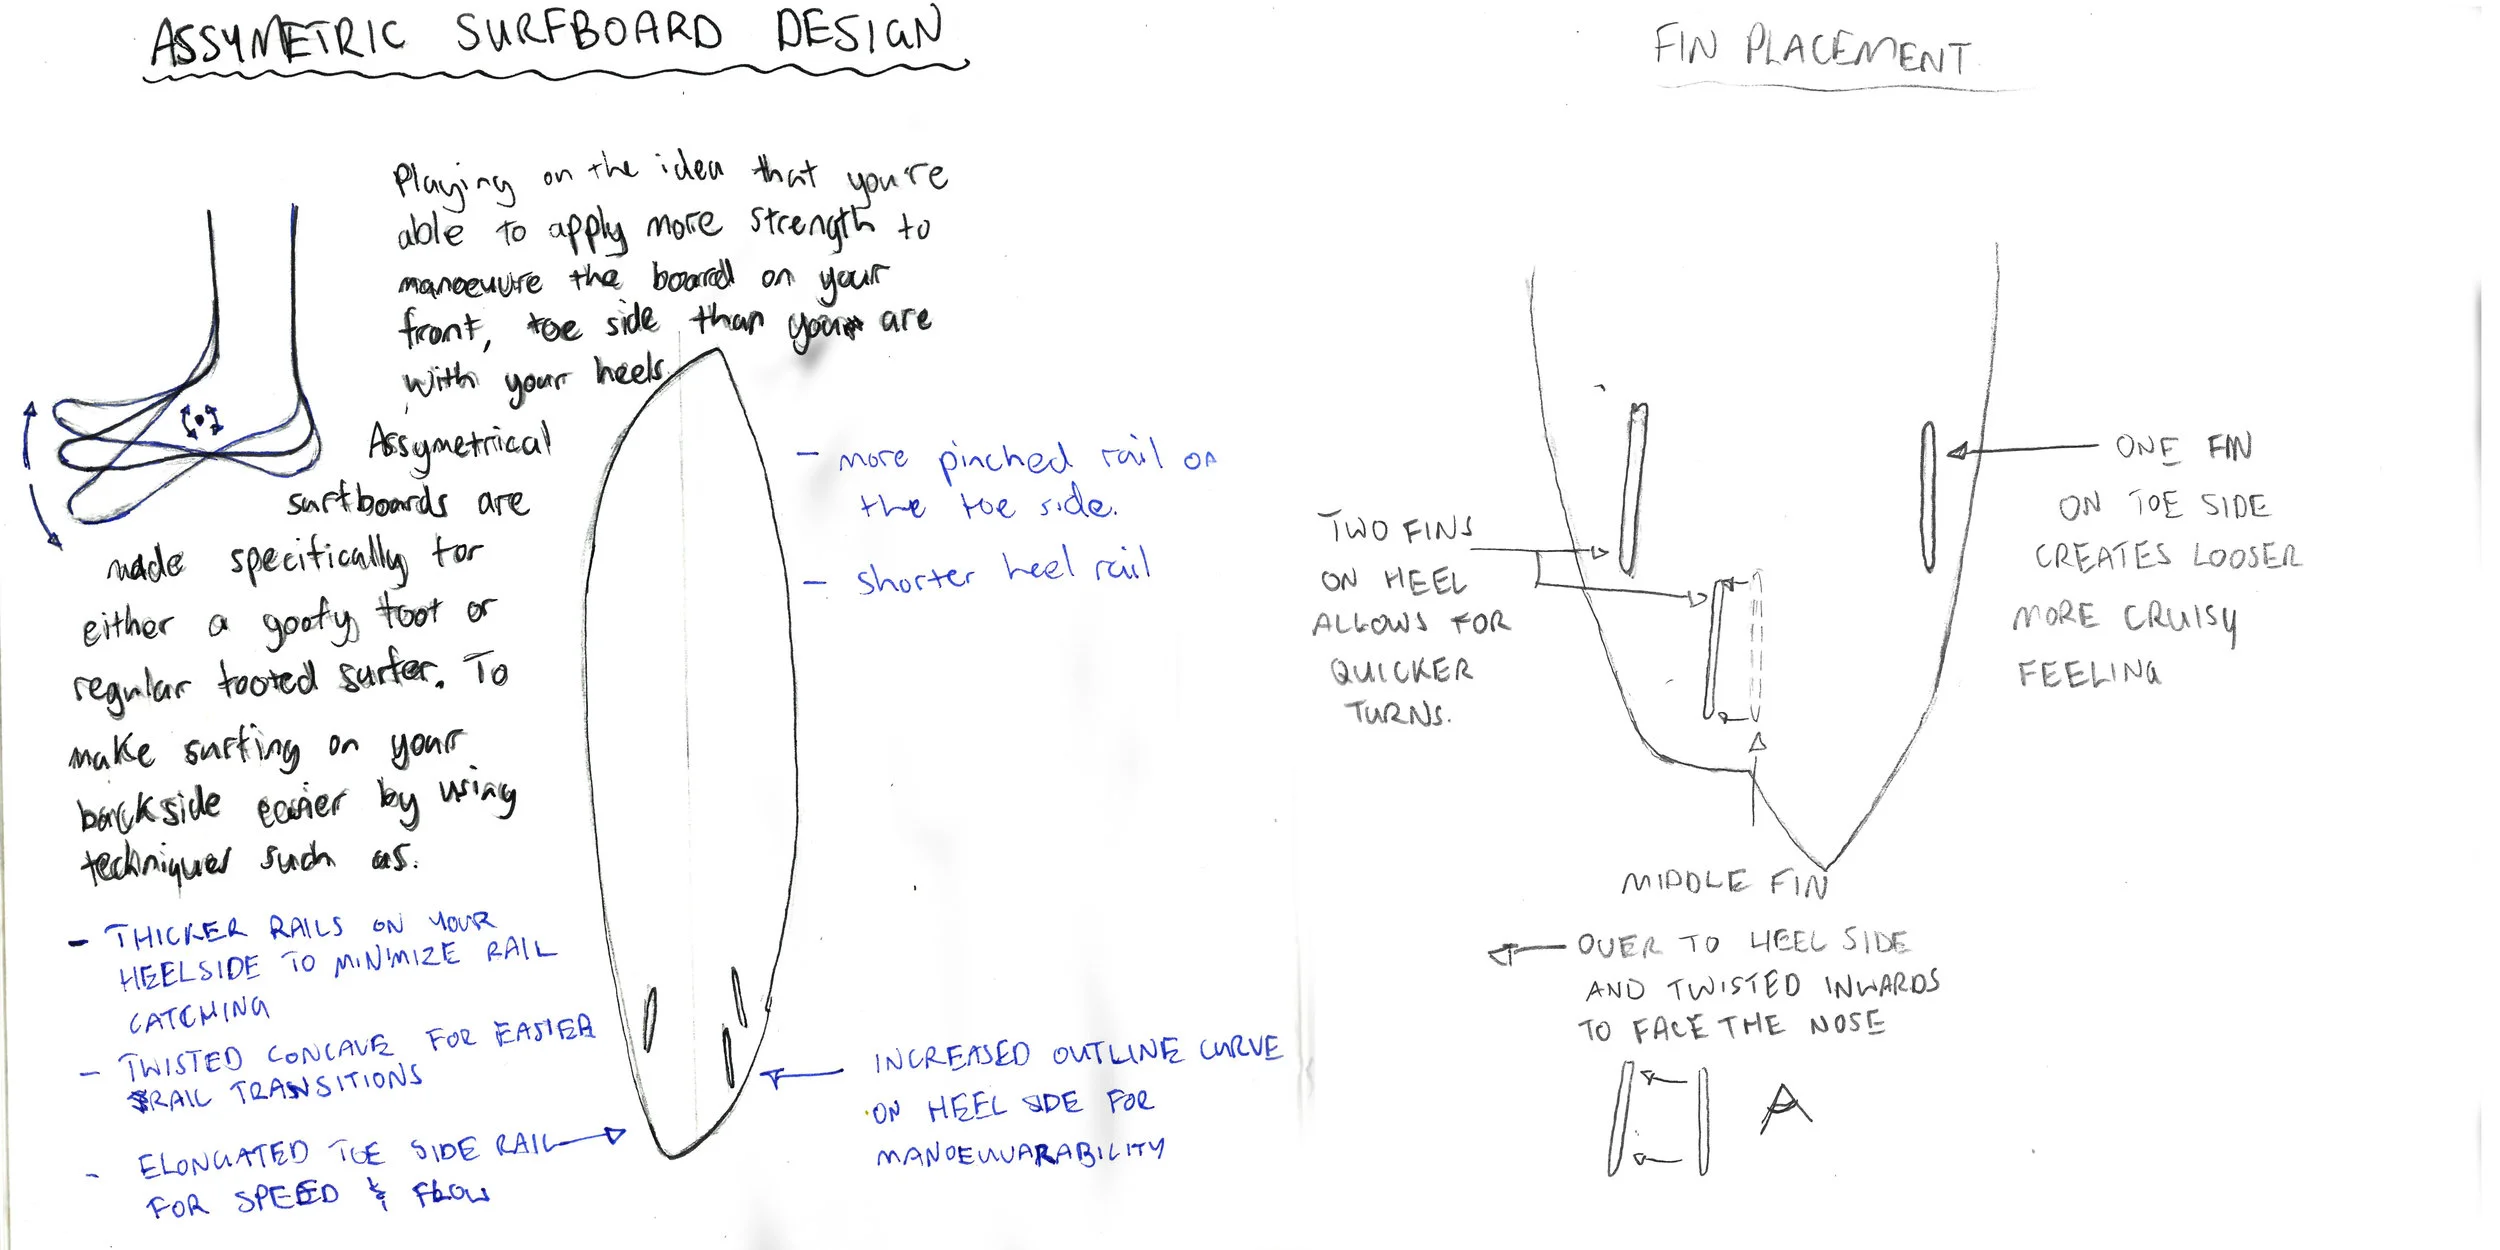 ASSYMETRIC SURFBOARD DESIGN
Playing on the idea that you're
able to apply more strength to
manoeuvre the board on your
front, toe side than you are
with your heels.
Assymetrical
surfboards are
made specifically for
either a goofy foot or
regular footed surfer. To
make surfing on your
backside easier by using
techniques such as.
- THICKER RAILS ON YOUR
HEELSIDE TO MINIMIZE RAIL
CATCHING
- TWISTED CONCAVE FOR EASIER
RAIL TRANSITIONS
- ELONGATED TOE SIDE RAIL
FOR SPEED & FLOW
- more pinched rail on
the toe side.
- shorter heel rail
INCREASED OUTLINE CURVE
ON HEEL SIDE FOR
MANOEUVARABILITY
FIN PLACEMENT
TWO FINS
ON HEEL
ALLOWS FOR
QUICKER
TURNS.
ONE FIN
ON TOE SIDE
CREATES LOOSER
MORE CRUISY
FEELING
MIDDLE FIN
OVER TO HEEL SIDE
AND TWISTED INWARDS
TO FACE THE NOSE